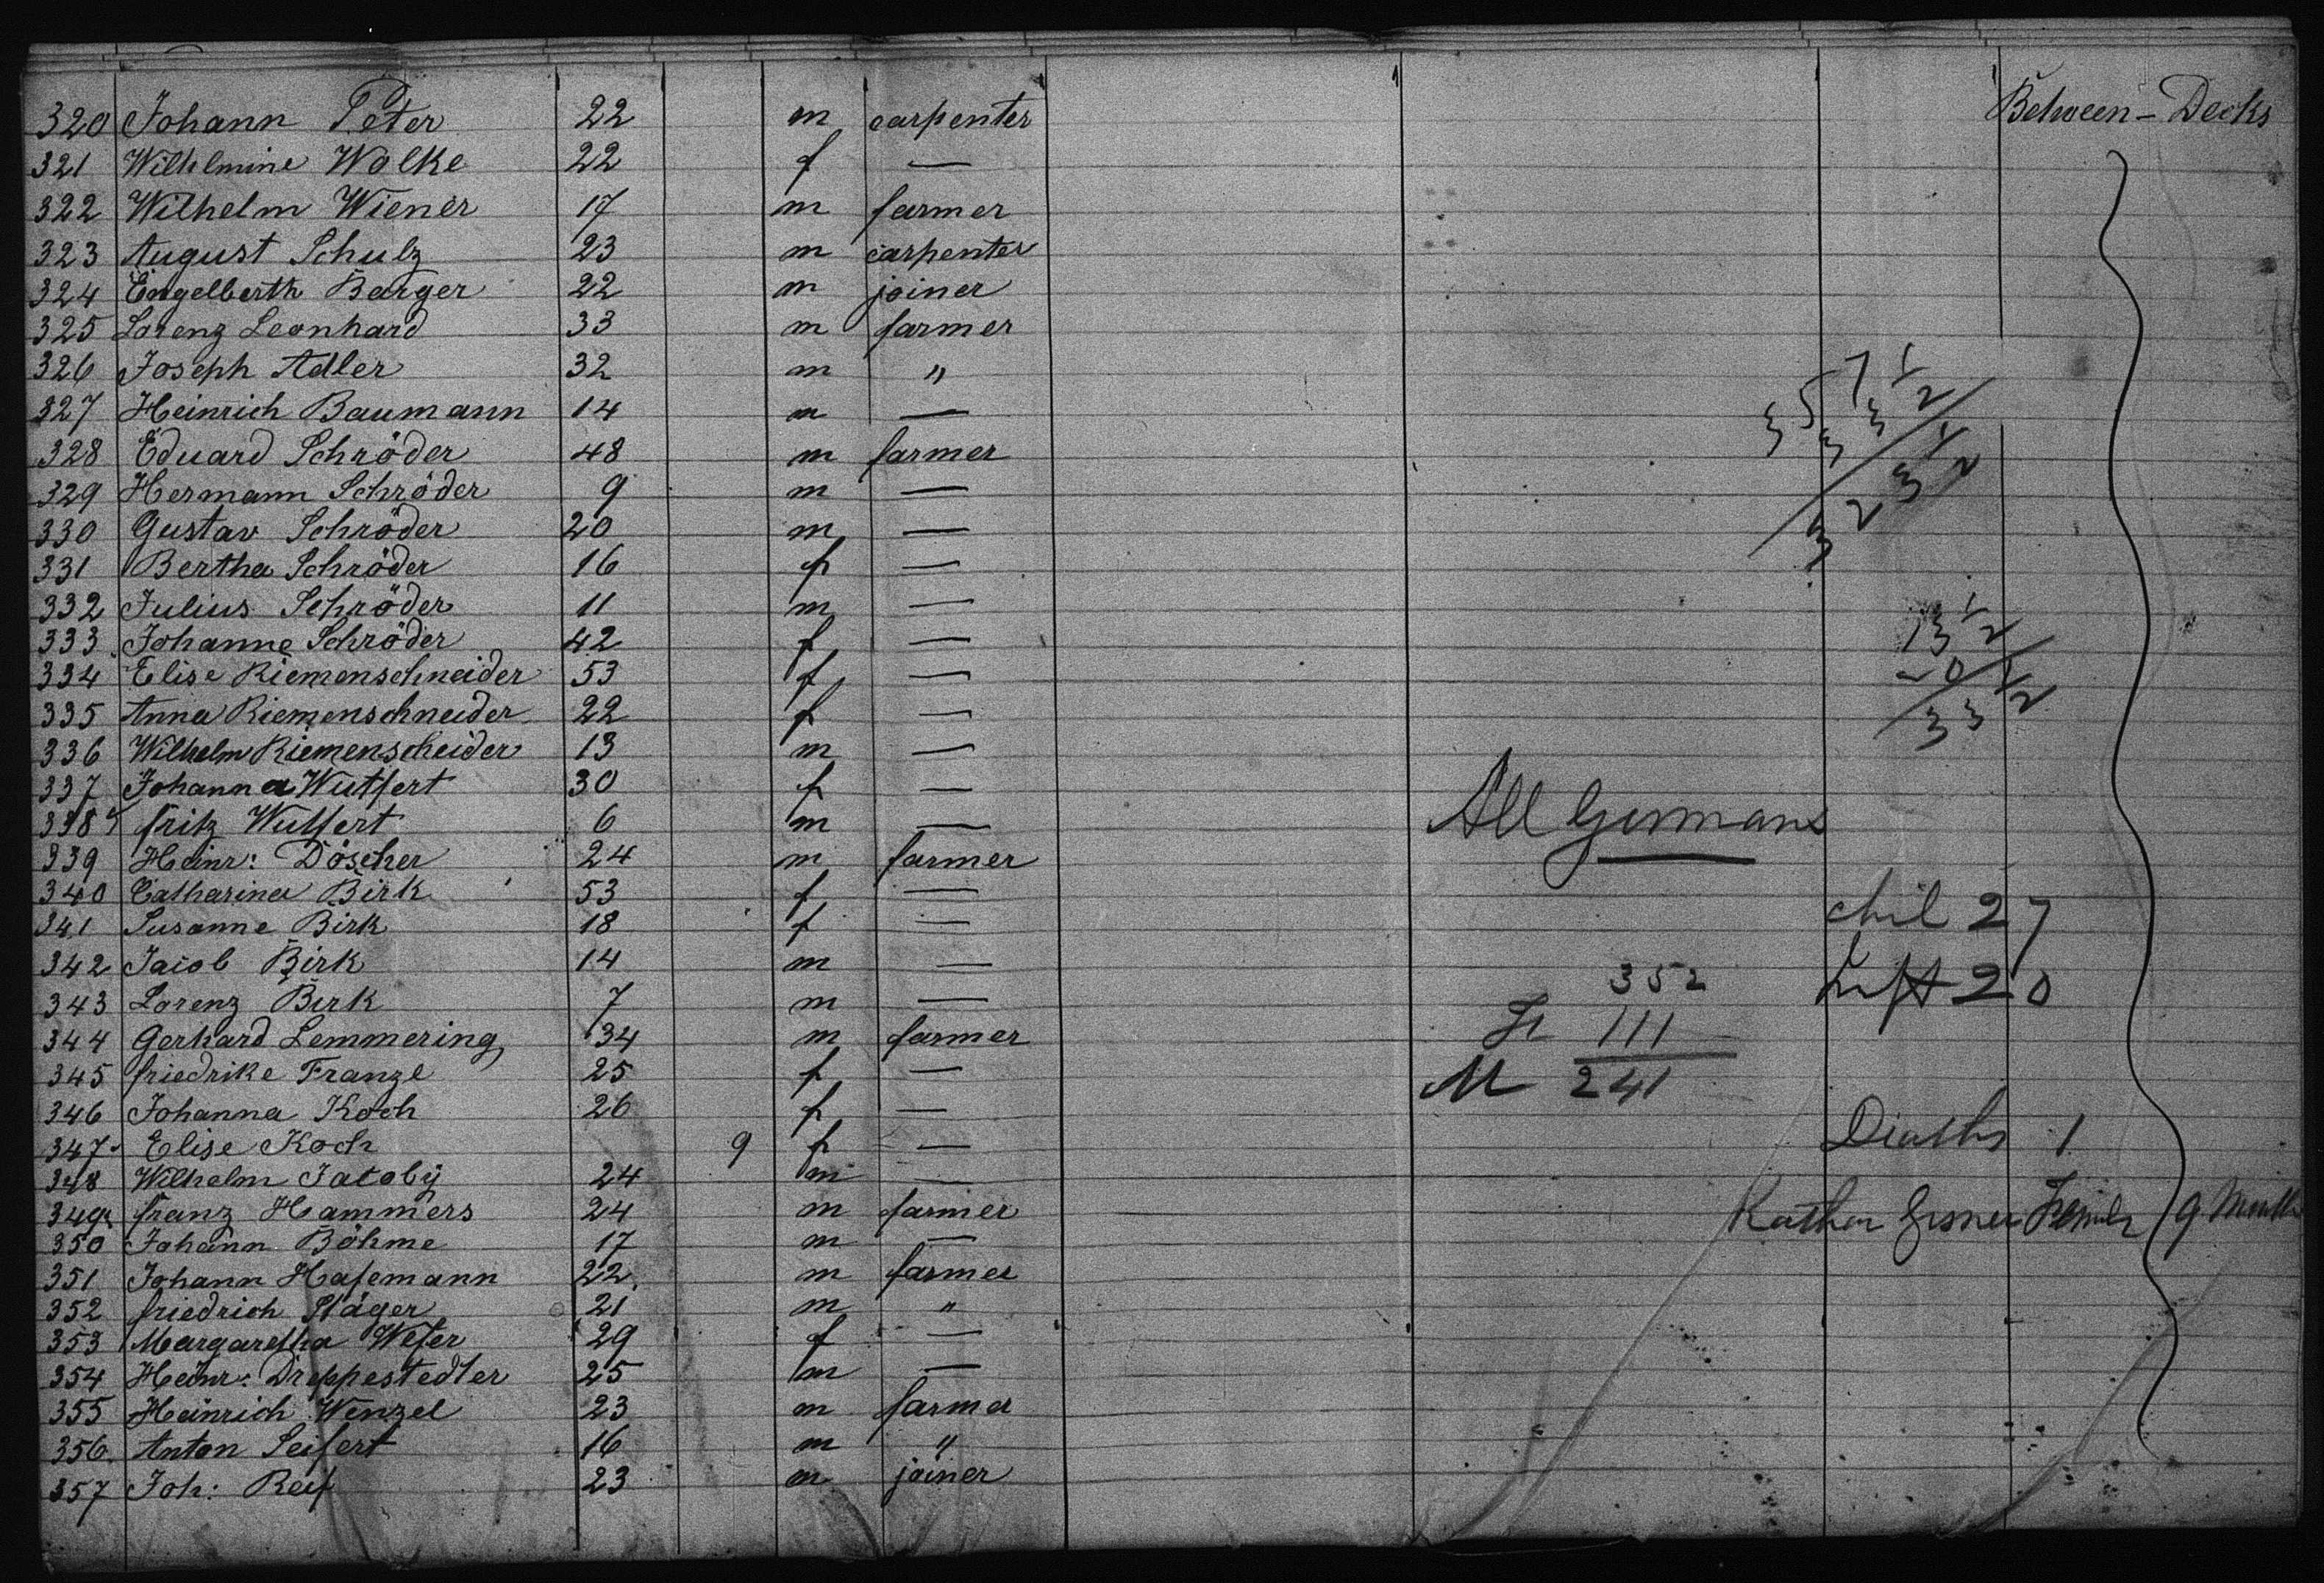 320 Johann Peter 22 m carpenter Between-Decks
321 Wilhelmine Wolke 22 f —
322 Wilhelm Wiener 17 m farmer
323 August Schulz 23 m carpenter
324 Engelberth Barger 22 m joiner
325 Lorenz Leonhard 33 m farmer
326 Joseph Adler 32 m "
327 Heinrich Baumann 14 m —
328 Eduard Schröder 48 m farmer
329 Hermann Schröder 9 m —
330 Gustav Schröder 20 m —
331 Bertha Schröder 16 f —
332 Julius Schröder 11 m —
333 Johanne Schröder 42 f —
334 Elise Riemenschneider 53 f —
335 Anna Riemenschneider 22 f —
336 Wilhelm Riemenscheider 13 m —
337 Johanna Wulfert 30 f —
338 fritz Wulfert 6 m —
339 Heinr: Döscher 24 m farmer
340 Catharina Birk 53 f —
341 Susanne Birk 18 f —
342 Jacob Birk 14 m —
343 Lorenz Birk 7 m —
344 Gerhard Lemmering 34 m farmer
345 friedrike Franze 25 f —
346 Johanna Koch 26 f —
347 Elise Koch 9 f —
348 Wilhelm Jacoby 24 m —
349 franz Hammers 24 m farmer
350 Johann Böhme 17 m —
351 Johann Hasemann 22 m farmer
352 friedrich Stäger 21 m "
353 Margaretha Weser 29 f —
354 Heinr: Dreppestedter 25 m —
355 Heinrich Wenzel 23 m farmer
356 Anton Seifert 16 m "
357 Joh: Reif 23 m joiner
357 1/2
33 1/2
323 1/2
13 1/2
20
33 1/2
All Germans
chil 27
Left 20
352
111
M 241
Deaths 1
9 Month